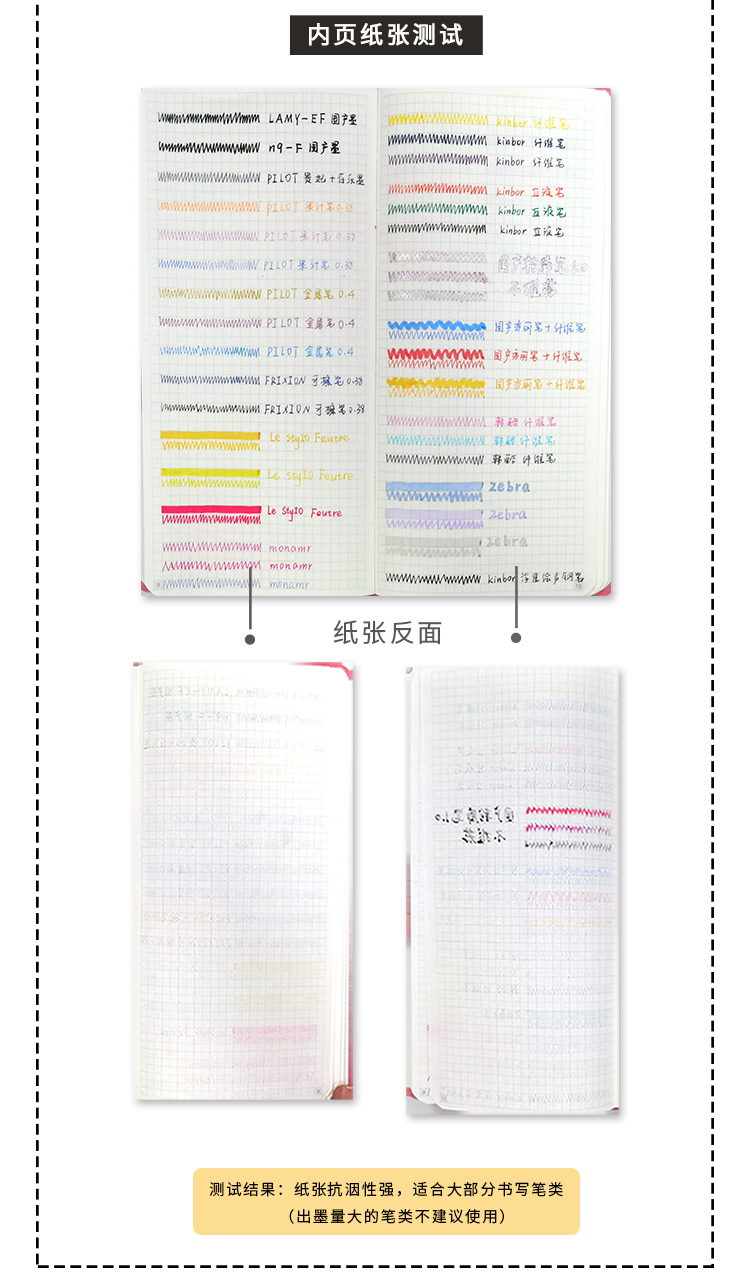 内页纸张测试
LAMY-EF 国产墨
n9-F 国产墨
PILOT 贵妃+百乐墨
PILOT 果汁笔0.38
PILOT 果汁笔0.38
PILOT 果汁笔0.38
PILOT 金属笔0.4
PILOT 金属笔0.4
PILOT 金属笔0.4
FRIXION 可擦笔0.38
FRIXION 可擦笔0.38
Le StylO Feutre
Le StylO Feutre
Le StylO Feutre
monamr
monamr
monamr
kinbor 纤维笔
kinbor 纤维笔
kinbor 纤维笔
kinbor 直液笔
kinbor 直液笔
kinbor 直液笔
国产轮廓笔1.0
不推荐
国产秀丽笔+纤维笔
国产秀丽笔+纤维笔
国产秀丽笔+纤维笔
纤维笔
纤维笔
纤维笔
zebra
zebra
zebra
kinbor
纸张反面
国产轮廓笔1.0
不推荐
测试结果：纸张抗洇性强，适合大部分书写笔类
（出墨量大的笔类不建议使用）